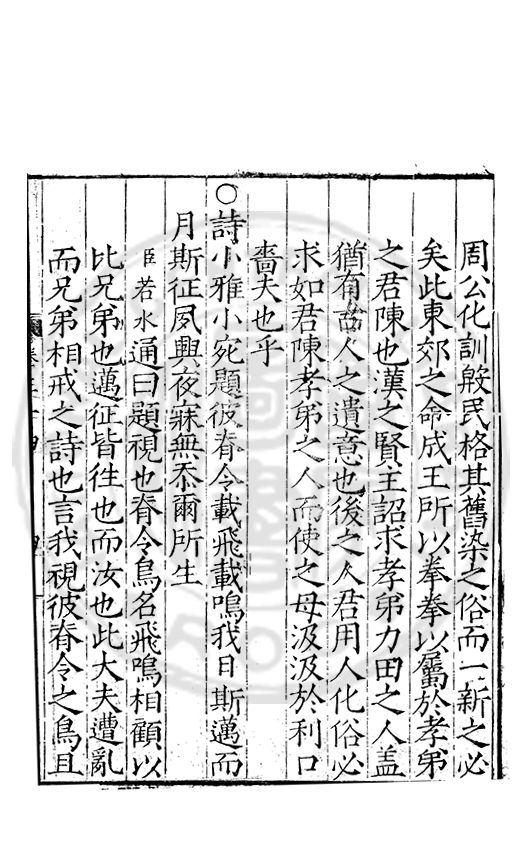 周公化訓殷民格其舊染之俗而一新之必
矣此東郊之命成王所以拳拳以屬於孝弟
之君陳也漢之賢王詔求孝弟力田之人盖
猶有苗人之遺意也後之人君用人化俗必
求如君陳孝弟之人而使之毋汲汲於利口
嗇夫也乎
○詩小雅小宛題彼脊令載飛載鳴我日斯邁而
月斯征夙興夜寐無忝爾所生
臣若水通曰題視也脊令鳥名飛鳴相顧以
比兄弟也邁征皆徃也而汝也此大夫遭亂
而兄弟相戒之詩也言我視彼脊令之鳥且